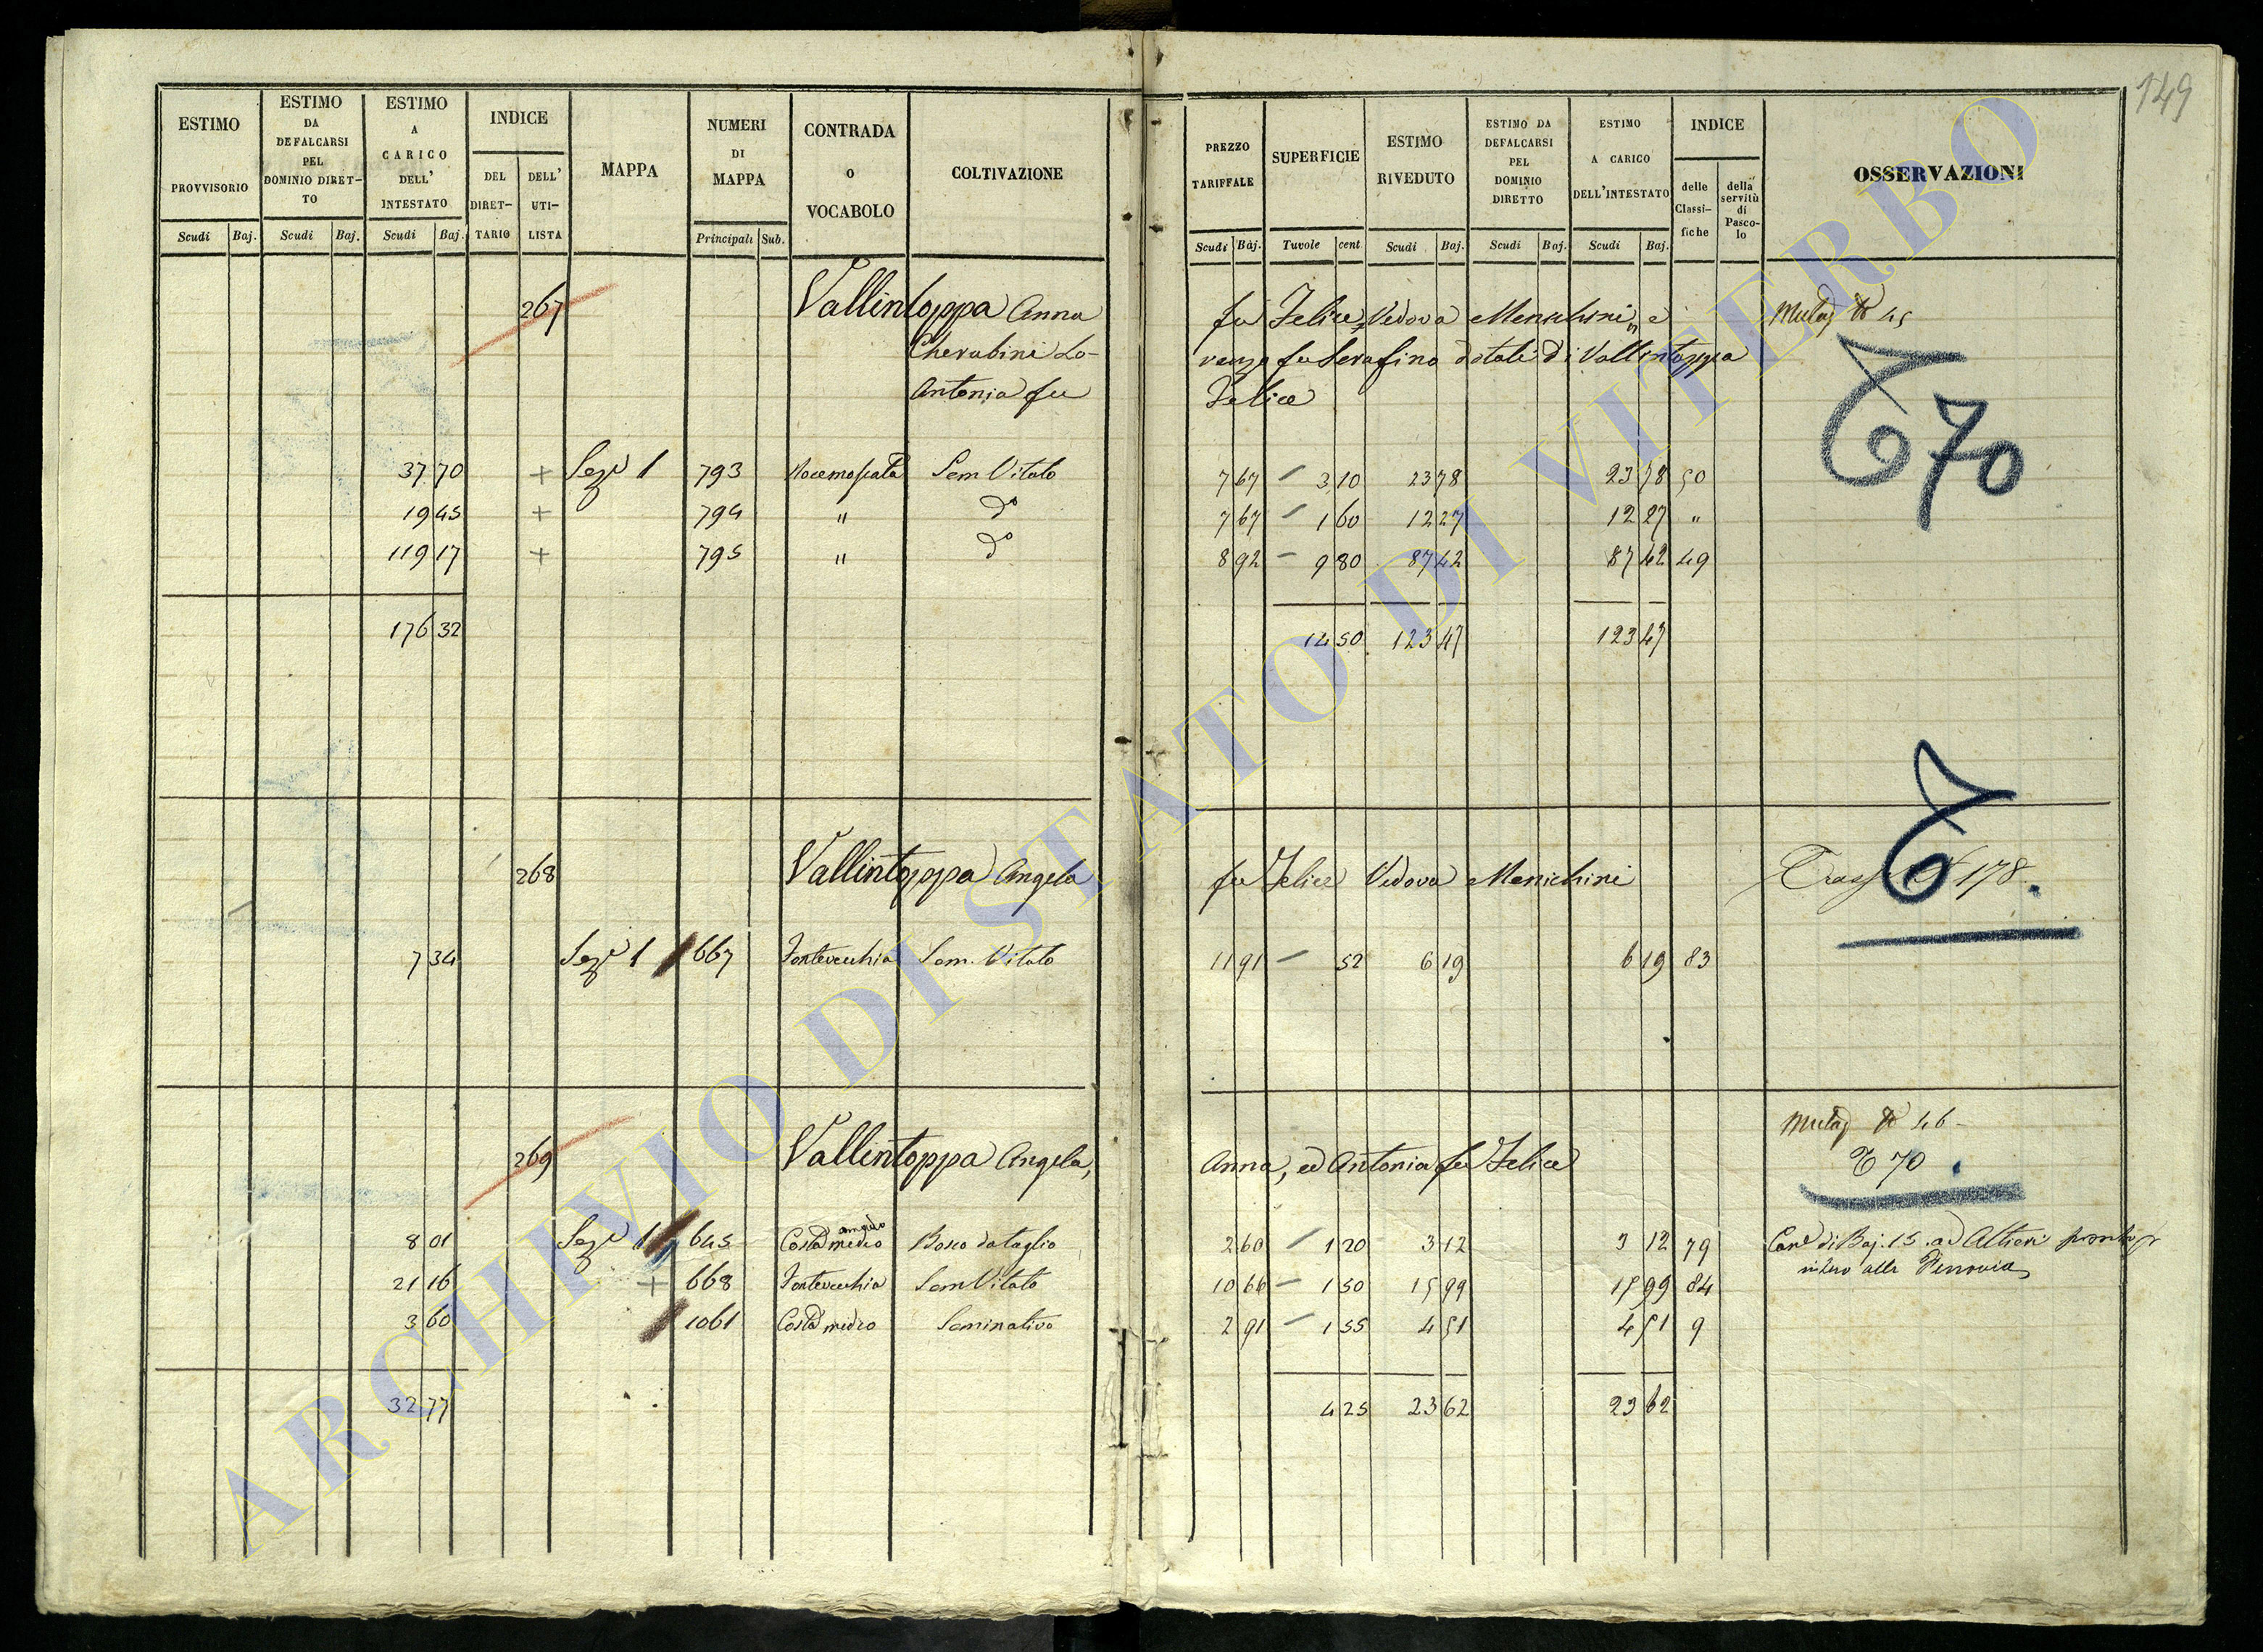 149
ESTIMO PROVVISORIO
ESTIMO DA DEFALCARSI PEL DOMINIO DIRET-TO
ESTIMO A CARICO DELL' INTESTATO
INDICE
DEL DIRET-TARIO
DELL' UTI-LISTA
MAPPA
NUMERI DI MAPPA
CONTRADA O VOCABOLO
COLTIVAZIONE
PREZZO TARIFFALE
SUPERFICIE
ESTIMO RIVEDUTO
ESTIMO DA DEFALCARSI PEL DOMINIO DIRETTO
ESTIMO A CARICO DELL'INTESTATO
INDICE
delle Classi-fiche
della servitù di Pasco-lo
OSSERVAZIONI
Scudi Baj. Scudi Baj. Scudi Baj. Principali Sub. Scudi Baj. Tavole cent Scudi Baj. Scudi Baj. Scudi Baj.
267 Vallintoppa Anna fu Felice, Vedova Menichini, e 45
Cherubini Lo- renzo fu Serafino dotali di Vallintoppa
Antonia fu Felice
70
37 70 + Seze 1 793 Sem Vitato 7 67 3 10 23 78 23 78 50
19 45 + 794 " do 7 67 1 60 12 27 12 27 "
119 17 + 795 " do 8 92 9 80 87 42 87 42 49
176 32 14 50 123 47 123 47
268 Vallintoppa Angela fu Felice Vedova Menichini 178.
7 34 Seze 1 667 Fontevecchia Sem. Vitato 11 91 52 6 19 6 19 83
269 Vallintoppa Angela, Anna, ed Antonia fu Felice 46
70
8 01 Seze 1 645 Costa medio Bosco da taglio 2 60 1 20 3 12 3 12 79 di Baj. 15. ad Altieri
21 16 + 668 Fontevecchia Sem Vitato 10 66 1 50 15 99 15 99 84 alla Ferrovia
3 60 1061 Costa medio Seminativo 2 91 1 55 4 51 4 51 9
32 77 4 25 23 62 23 62
ARCHIVIO DI STATO DI VITERBO